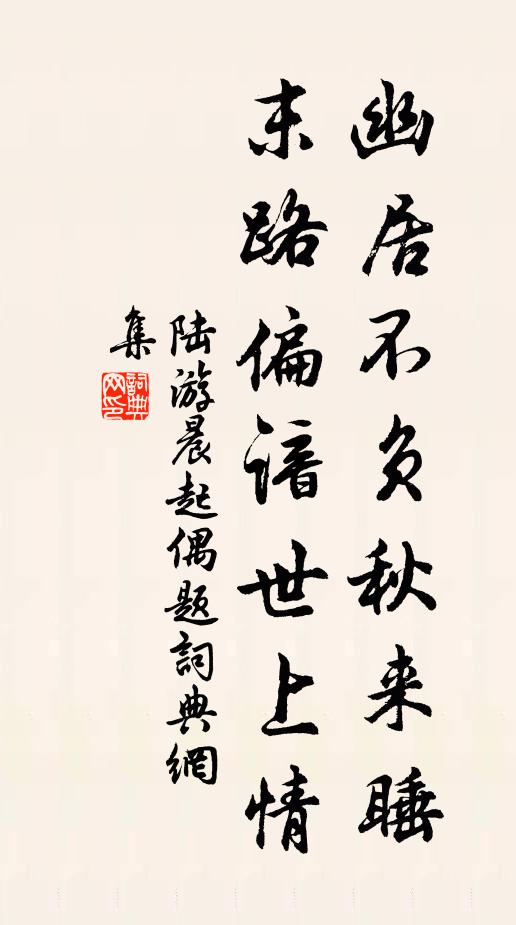 幽居不负秋来睡
末路偏谙世上情
陆游晨起偶题詞典網
集
詞典
网印